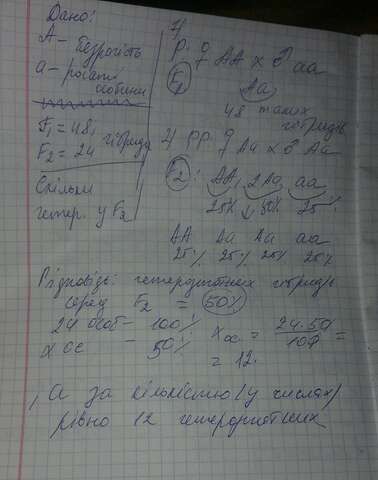 Дано:
А - безрогість
а - рогаті
F₁ = 48,
F₂ = 24 гібрида
Скільки
гетер. у F₂
1)
P. ♀ АА × ♂ аа
F₁
Аа
48 таких
гібридів
2) PP. ♀ Аа × ♂ Аа
F₂: АА, 2Аа, аа
25% 50% 25%
АА Аа Аа аа
25% 25% 25% 25%
Відповідь: гетерозиготних гібридів
серед F₂ = 50%
24 особ - 100%
х ос - 50%
х ос. = 24·50 / 100 =
= 12.
, А за кількістю (у числах)
рівно 12 гетерозиготних